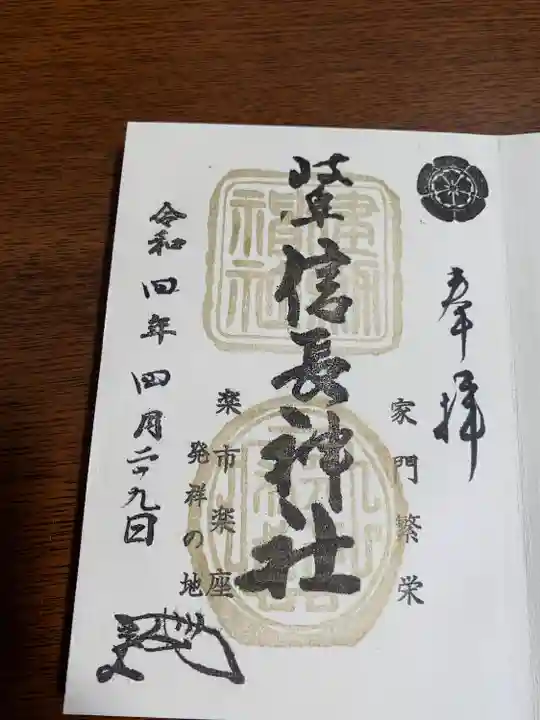 奉拝
家門繁栄
岐阜信長神社
楽市楽座
発祥の地
令和四年四月二十九日
建勲
神社